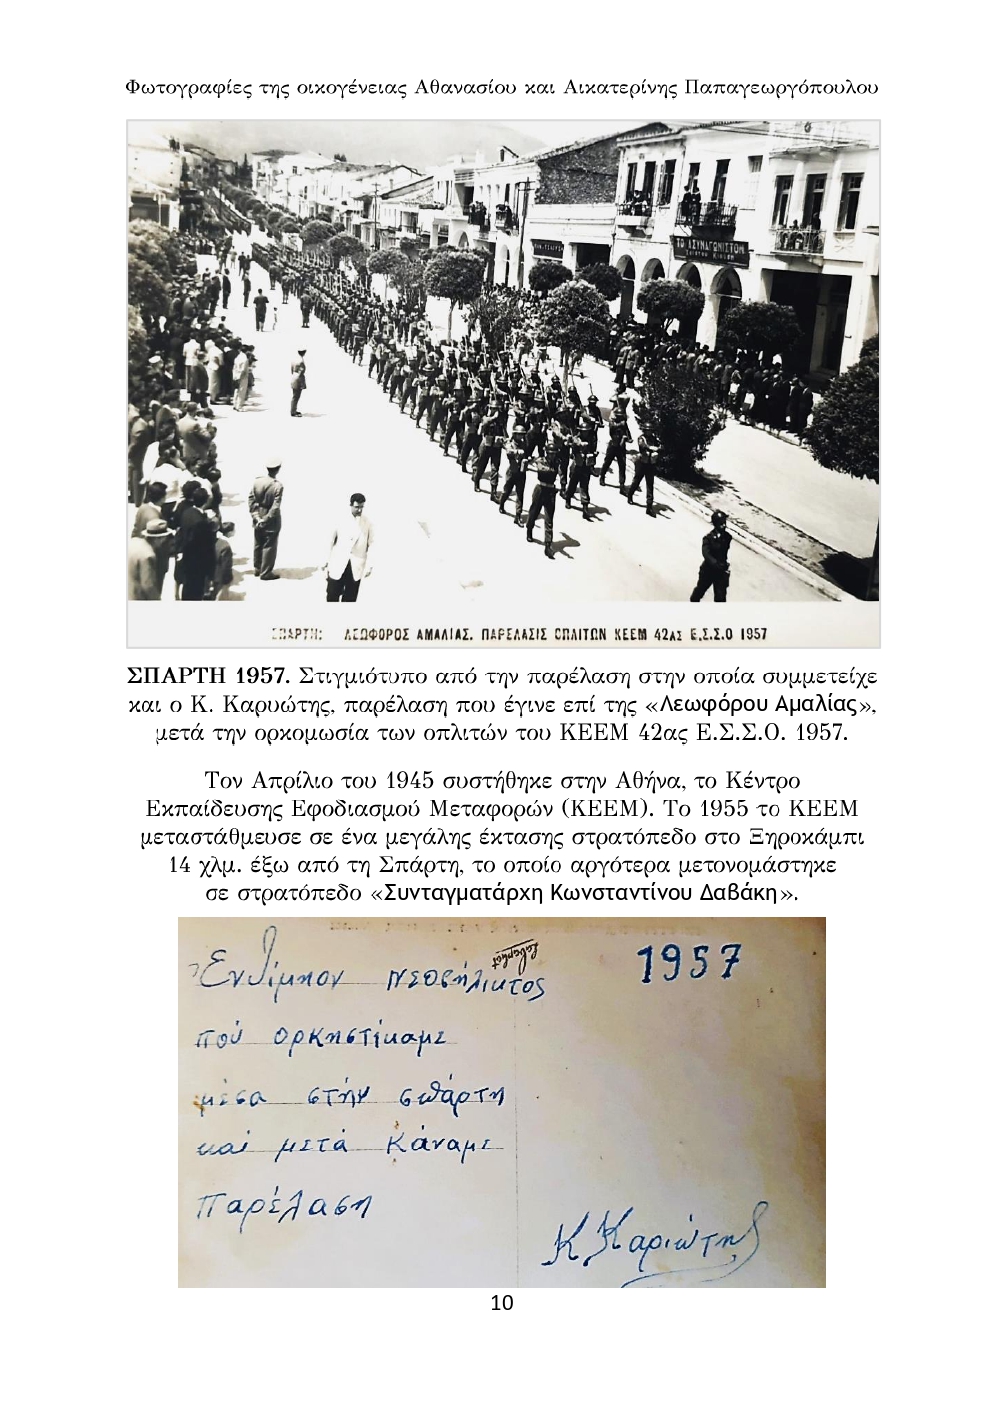 Φωτογραφίες της οικογένειας Αθανασίου και Αικατερίνης Παπαγεωργόπουλου
ΤΟ ΑΣΥΝΑΓΩΝΙΣΤΟΝ
ΣΠΑΡΤΗ: ΛΕΩΦΟΡΟΣ ΑΜΑΛΙΑΣ. ΠΑΡΕΛΑΣΙΣ ΟΠΛΙΤΩΝ ΚΕΕΜ 42ΑΣ Ε.Σ.Σ.Ο 1957
ΣΠΑΡΤΗ 1957. Στιγμιότυπο από την παρέλαση στην οποία συμμετείχε
και ο Κ. Καρυώτης, παρέλαση που έγινε επί της «Λεωφόρου Αμαλίας»,
μετά την ορκομωσία των οπλιτών του ΚΕΕΜ 42ας Ε.Σ.Σ.Ο. 1957.
Τον Απρίλιο του 1945 συστήθηκε στην Αθήνα, το Κέντρο
Εκπαίδευσης Εφοδιασμού Μεταφορών (ΚΕΕΜ). Το 1955 το ΚΕΕΜ
μεταστάθμευσε σε ένα μεγάλης έκτασης στρατόπεδο στο Ξηροκάμπι
14 χλμ. έξω από τη Σπάρτη, το οποίο αργότερα μετονομάστηκε
σε στρατόπεδο «Συνταγματάρχη Κωνσταντίνου Δαβάκη».
1957
Ενθίμηον Νεοσήλικτος
πού ορκηστίκαμε
μέσα στήν σπάρτη
καί μετά κάναμε
παρέλαση
Κ. Καριώτης
10